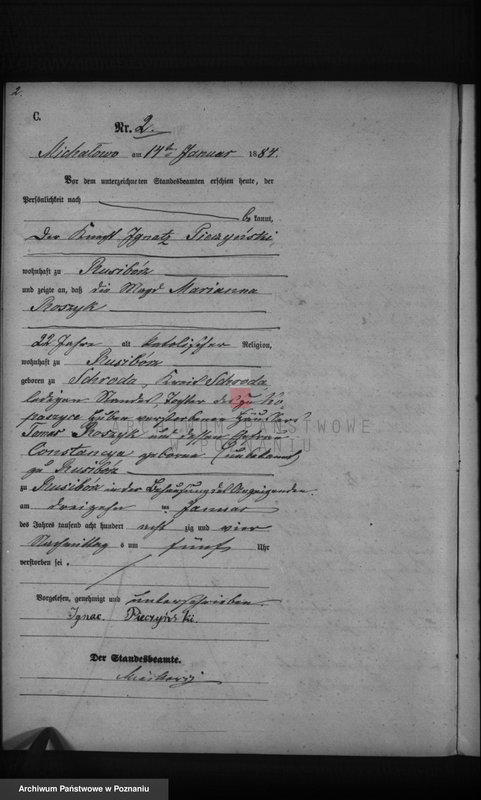 2.
C.
Nr. 2.
Michalowo am 14ten Januar 1884.
Vor dem unterzeichneten Standesbeamten erschien heute, der
Persönlichkeit nach
be kannt,
Der Knecht Ignatz Pieczyński
wohnhaft zu Rusibórz
und zeigte an, daß die Magd Marianna
Roszyk
22 Jahre alt katolischer Religion,
wohnhaft zu Rusibórz
geboren zu Schroda, Kreis Schroda
ledigen Standes, Tochter des zu
verstorbenen Häuslers
Tomas Roszyk und dessen Ehefrau
Constancya geborene (unbekannt)
zu Rusibórz
zu Rusibórz in der Behausung des Anzeigenden.
am dreizehn ten Januar
des Jahres tausend acht hundert acht zig und vier
Nachmittag s um fünf Uhr
verstorben sei.
Vorgelesen, genehmigt und unterschrieben.
Ignac. Pieczyński.
Der Standesbeamte.
ARCHIWUM PAŃSTWOWE
W POZNANIU
Archiwum Państwowe w Poznaniu